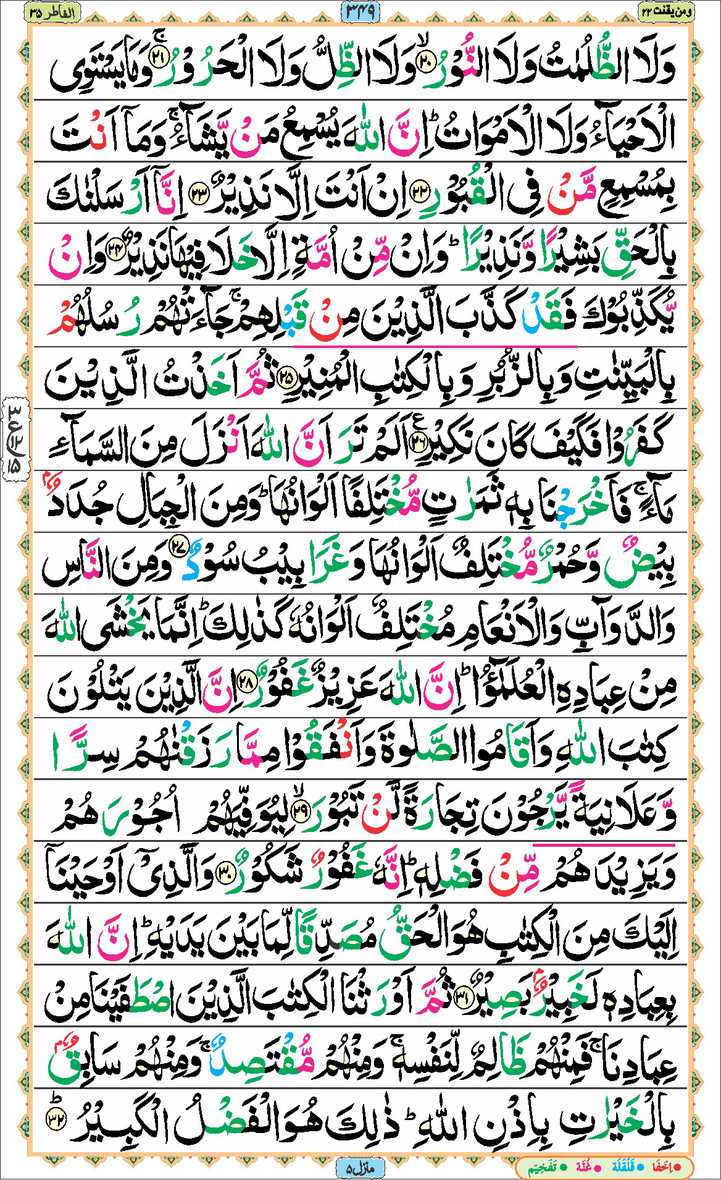 ومن یقنت ۲۲
۳۴۹
الفاطر ۳۵
وَلَا الظُّلُمٰتُ وَلَا النُّوۡرُ ۙ‏﴿۲۰﴾ وَلَا الظِّلُّ وَلَا الۡحَـرُوۡرُ ۚ‏﴿۲۱﴾ وَمَا يَسۡتَوِى
الۡاَحۡيَآءُ وَلَا الۡاَمۡوَاتُ ؕ اِنَّ اللّٰهَ يُسۡمِعُ مَنۡ يَّشَآءُ ۚ وَمَاۤ اَنۡتَ
بِمُسۡمِعٍ مَّنۡ فِى الۡقُبُوۡرِ‏﴿۲۲﴾ اِنۡ اَنۡتَ اِلَّا نَذِيۡرٌ‏﴿۲۳﴾ اِنَّاۤ اَرۡسَلۡنٰكَ
بِالۡحَـقِّ بَشِيۡرًا وَّنَذِيۡرًا ؕ وَاِنۡ مِّنۡ اُمَّةٍ اِلَّا خَلَا فِيۡهَا نَذِيۡرٌ‏﴿۲۴﴾ وَاِنۡ
يُّكَذِّبُوۡكَ فَقَدۡ كَذَّبَ الَّذِيۡنَ مِنۡ قَبۡلِهِمۡ ۚ جَآءَتۡهُمۡ رُسُلُهُمۡ
بِالۡبَيِّنٰتِ وَبِالزُّبُرِ وَبِالۡكِتٰبِ الۡمُنِيۡرِ‏﴿۲۵﴾ ثُمَّ اَخَذۡتُ الَّذِيۡنَ
كَفَرُوۡا فَكَيۡفَ كَانَ نَـكِيۡرِ‏﴿۲۶﴾ اَلَمۡ تَرَ اَنَّ اللّٰهَ اَنۡزَلَ مِنَ السَّمَآءِ
مَآءً ۚ فَاَخۡرَجۡنَا بِهٖ ثَمَرٰتٍ مُّخۡتَلِفًا اَلۡوَانُهَا ؕ وَمِنَ الۡجِبَالِ جُدَدٌۢ
بِيۡضٌ وَّحُمۡرٌ مُّخۡتَلِفٌ اَلۡوَانُهَا وَغَرَابِيۡبُ سُوۡدٌ‏﴿۲۷﴾ وَمِنَ النَّاسِ
وَالدَّوَآبِّ وَالۡاَنۡعَامِ مُخۡتَلِفٌ اَلۡوَانُهٗ كَذٰلِكَ ؕ اِنَّمَا يَخۡشَى اللّٰهَ
مِنۡ عِبَادِهِ الۡعُلَمٰٓؤُا ؕ اِنَّ اللّٰهَ عَزِيۡزٌ غَفُوۡرٌ‏﴿۲۸﴾ اِنَّ الَّذِيۡنَ يَتۡلُوۡنَ
كِتٰبَ اللّٰهِ وَاَقَامُوا الصَّلٰوةَ وَاَنۡفَقُوۡا مِمَّا رَزَقۡنٰهُمۡ سِرًّا
وَّعَلَانِيَةً يَّرۡجُوۡنَ تِجَارَةً لَّنۡ تَبُوۡرَ ۙ‏﴿۲۹﴾ لِيُوَفِّيَهُمۡ اُجُوۡرَهُمۡ
وَيَزِيۡدَهُمۡ مِّنۡ فَضۡلِهٖ ؕ اِنَّهٗ غَفُوۡرٌ شَكُوۡرٌ‏﴿۳۰﴾ وَالَّذِىۡۤ اَوۡحَيۡنَاۤ
اِلَيۡكَ مِنَ الۡكِتٰبِ هُوَ الۡحَـقُّ مُصَدِّقًا لِّمَا بَيۡنَ يَدَيۡهِ ؕ اِنَّ اللّٰهَ
بِعِبَادِهٖ لَخَبِيۡرٌۢ بَصِيۡرٌ‏﴿۳۱﴾ ثُمَّ اَوۡرَثۡنَا الۡكِتٰبَ الَّذِيۡنَ اصۡطَفَيۡنَا مِنۡ
عِبَادِنَا ۚ فَمِنۡهُمۡ ظَالِمٌ لِّنَفۡسِهٖ ۚ وَمِنۡهُمۡ مُّقۡتَصِدٌ ۚ وَمِنۡهُمۡ سَابِقٌۢ
بِالۡخَيۡرٰتِ بِاِذۡنِ اللّٰهِ ؕ ذٰلِكَ هُوَ الۡفَضۡلُ الۡكَبِيۡرُ ؕ‏﴿۳۲﴾
منزل ۵
اِخفَا • قَلقَلَة • غُنَّة • تَفخِیم •